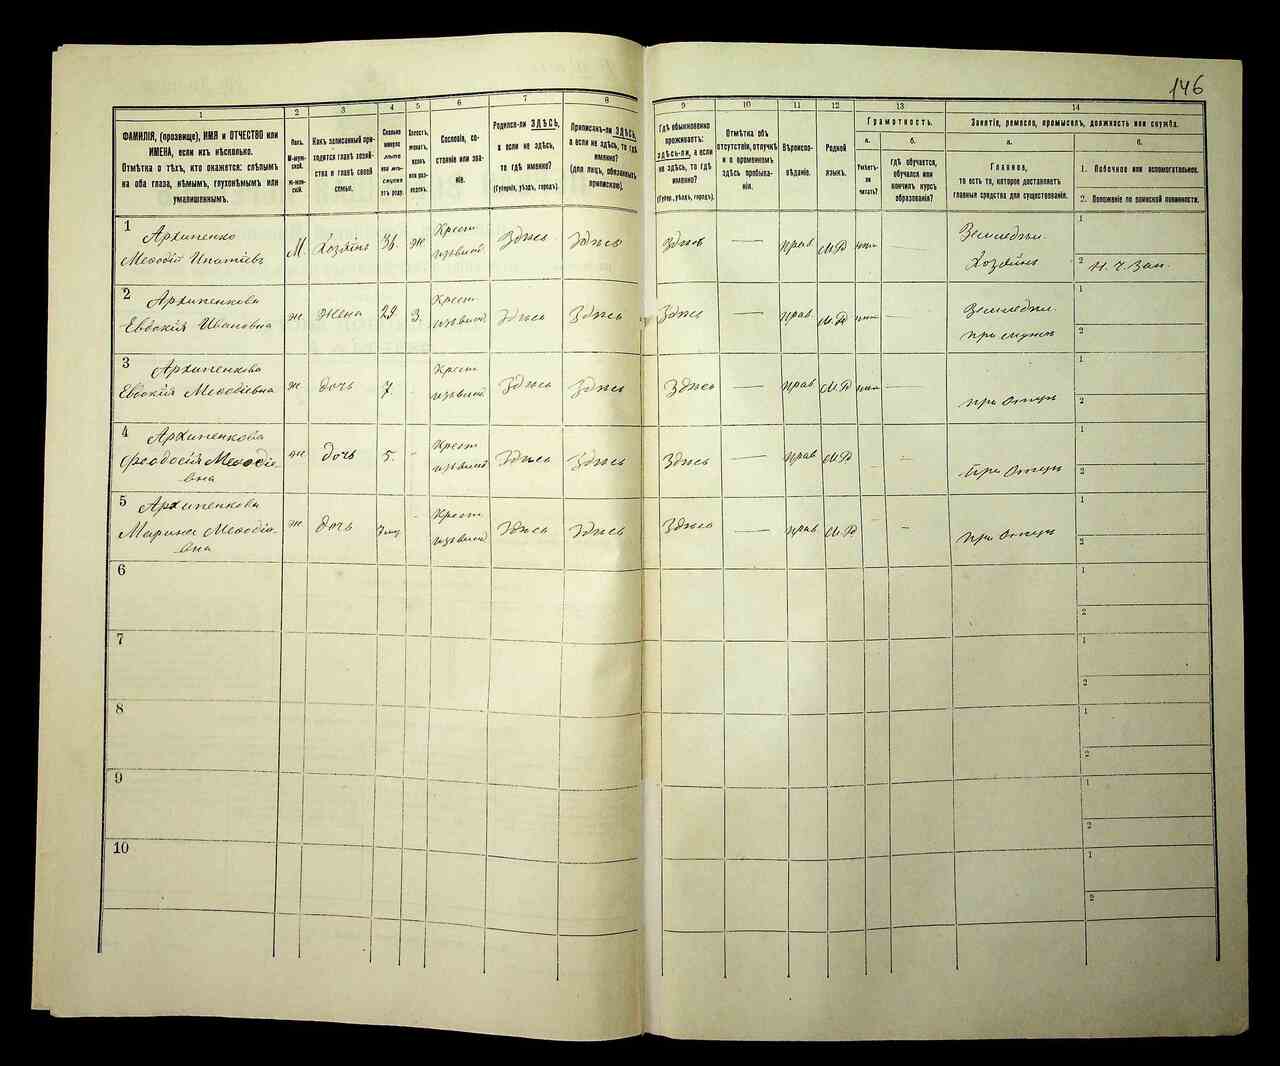 146
1
2
3
4
5
6
7
8
9
10
11
12
13
14
ФАМИЛІЯ, (прозвище), ИМЯ и ОТЧЕСТВО или
ИМЕНА, если ихъ нѣсколько.
Отмѣтка о тѣхъ, кто окажется: слѣпымъ
на оба глаза, нѣмымъ, глухонѣмымъ или
умалишеннымъ.
Полъ.
М-муж-
ской.
Ж-жен-
скій.
Какъ записанный при-
ходится главѣ хозяй-
ства и главѣ своей
семьи.
Сколько
минуло
лѣтъ
или мѣ-
сяцевъ
отъ роду.
Холостъ,
женатъ,
вдовъ
или раз-
веденъ.
Сословіе, со-
стояніе или зва-
ніе.
Родился-ли ЗДѢСЬ,
а если не здѣсь,
то гдѣ именно?
(Губернія, уѣздъ, городъ).
Приписанъ-ли ЗДѢСЬ,
а если не здѣсь, то гдѣ
именно?
(для лицъ, обязанныхъ
припискою).
Гдѣ обыкновенно
проживаетъ:
здѣсь-ли, а если
не здѣсь, то гдѣ
именно?
(Губерн., уѣздъ, городъ).
Отмѣтка объ
отсутствіи, отлучкѣ
и о временномъ
здѣсь пребыва-
ніи.
Вѣроиспо-
вѣданіе.
Родной
языкъ.
Грамотность.
а.
Умѣетъ-
ли
читать?
б.
гдѣ обучается,
обучался или
кончилъ курсъ
образованія?
Занятіе, ремесло, промыселъ, должность или служба.
а.
Главное,
то есть то, которое доставляетъ
главныя средства для существованія.
б.
1. Побочное или вспомогательное.
2. Положеніе по воинской повинности.
1
Архипенко
Меѳодій Ипатіевъ
М.
Хозяинъ
36
Ж
Крест.
Здѣсь
Здѣсь
Здѣсь
—
прав
М.Р
Земледѣл.
Хозяинъ
1
2
2
Архипенкова
Евдокія Ивановна
ж
Жена
29
З.
Крест.
Здѣсь
Здѣсь
Здѣсь
—
прав
М.Р
Земледѣл.
при мужѣ
1
2
3
Архипенкова
Евдокія Меѳодіевна
ж
дочь
7.
Крест.
Здѣсь
Здѣсь
Здѣсь
—
прав
М.Р
при Отцѣ
1
2
4
Архипенкова
Ѳеодосія Меѳодіе-
вна
ж
дочь
5.
-
Крест.
Здѣсь
Здѣсь
Здѣсь
—
прав
М.Р
при Отцѣ
1
2
5
Архипенкова
Марина Меѳодіе-
вна
ж
дочь
Крест.
Здѣсь
Здѣсь
Здѣсь
—
прав
М.Р
при Отцѣ
1
2
6
1
2
7
1
2
8
1
2
9
1
2
10
1
2